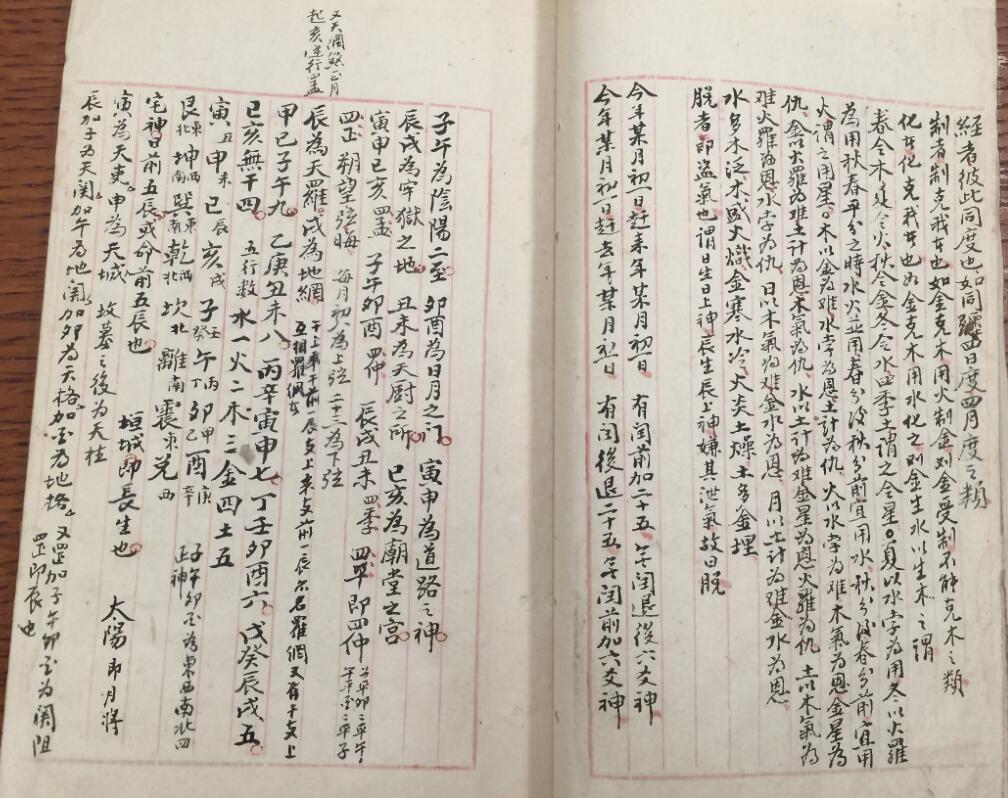 経者彼此同度也如同躔四日度四月度之類
制者制克我者也如金克木用火制金則金受制不能克木之類
化者化克我者也如金克木用水化之則金生水以生木之謂
春令木夏令火秋令金冬令水四季土謂之令星○夏以水孛為用冬以火羅
為用秋春平分之時水火並用春分後秋分前宜用水秋分後春分前宜用
火謂之用星○木以金為难水孛為恩土計為仇火以水孛為难木氣為恩金星為
仇金以火羅為难土計為恩木氣為仇水以土計為难金星為恩火羅為仇土以木氣為
难火羅為恩水孛為仇日以木氣為难金水為恩月以土計為难金水為恩
水多木泛木盛火熾金寒水冷火炎土燥土多金埋
脫者即盜氣也謂日生日上神辰生辰上神嫌其泄氣故曰脫
今年某月初一日赶来年某月初一日 有閏前加二十五 無閏退後六爻神
今年某月初一日赶去年某月初一日 有閏後退二十五 無閏前加六爻神
又天潤煞正月
起亥逆行孟
子午為陰陽二至 卯酉為日月之门 寅申為道路之神
辰戌為牢獄之地 丑未為天厨之所 巳亥為廟堂之宮
寅申巳亥四孟 子午卯酉四仲 辰戌丑未四季 四平即四仲
四正朔望弦晦 每月初八為上弦二十三為下弦
辰為天羅戌為地網
甲己子午九 乙庚丑未八 丙辛寅申七 丁壬卯酉六 戊癸辰戌五
巳亥無干四 五行数 水一火二木三金四土五
寅丑 申未 巳辰 亥戌 子壬癸 午丙丁 卯甲乙 酉庚辛
艮東北 坤西南 巽東南 乾西北 坎北 離南 震東 兌西
宅神日前五辰或命前五辰也 垣城即長生也 太陽即月將
寅為天吏申為天城 坟墓之後為天柱
辰加子為天関加午為地関加卯為天格加酉為地格 又罡加子午卯酉為関阻
罡即辰也